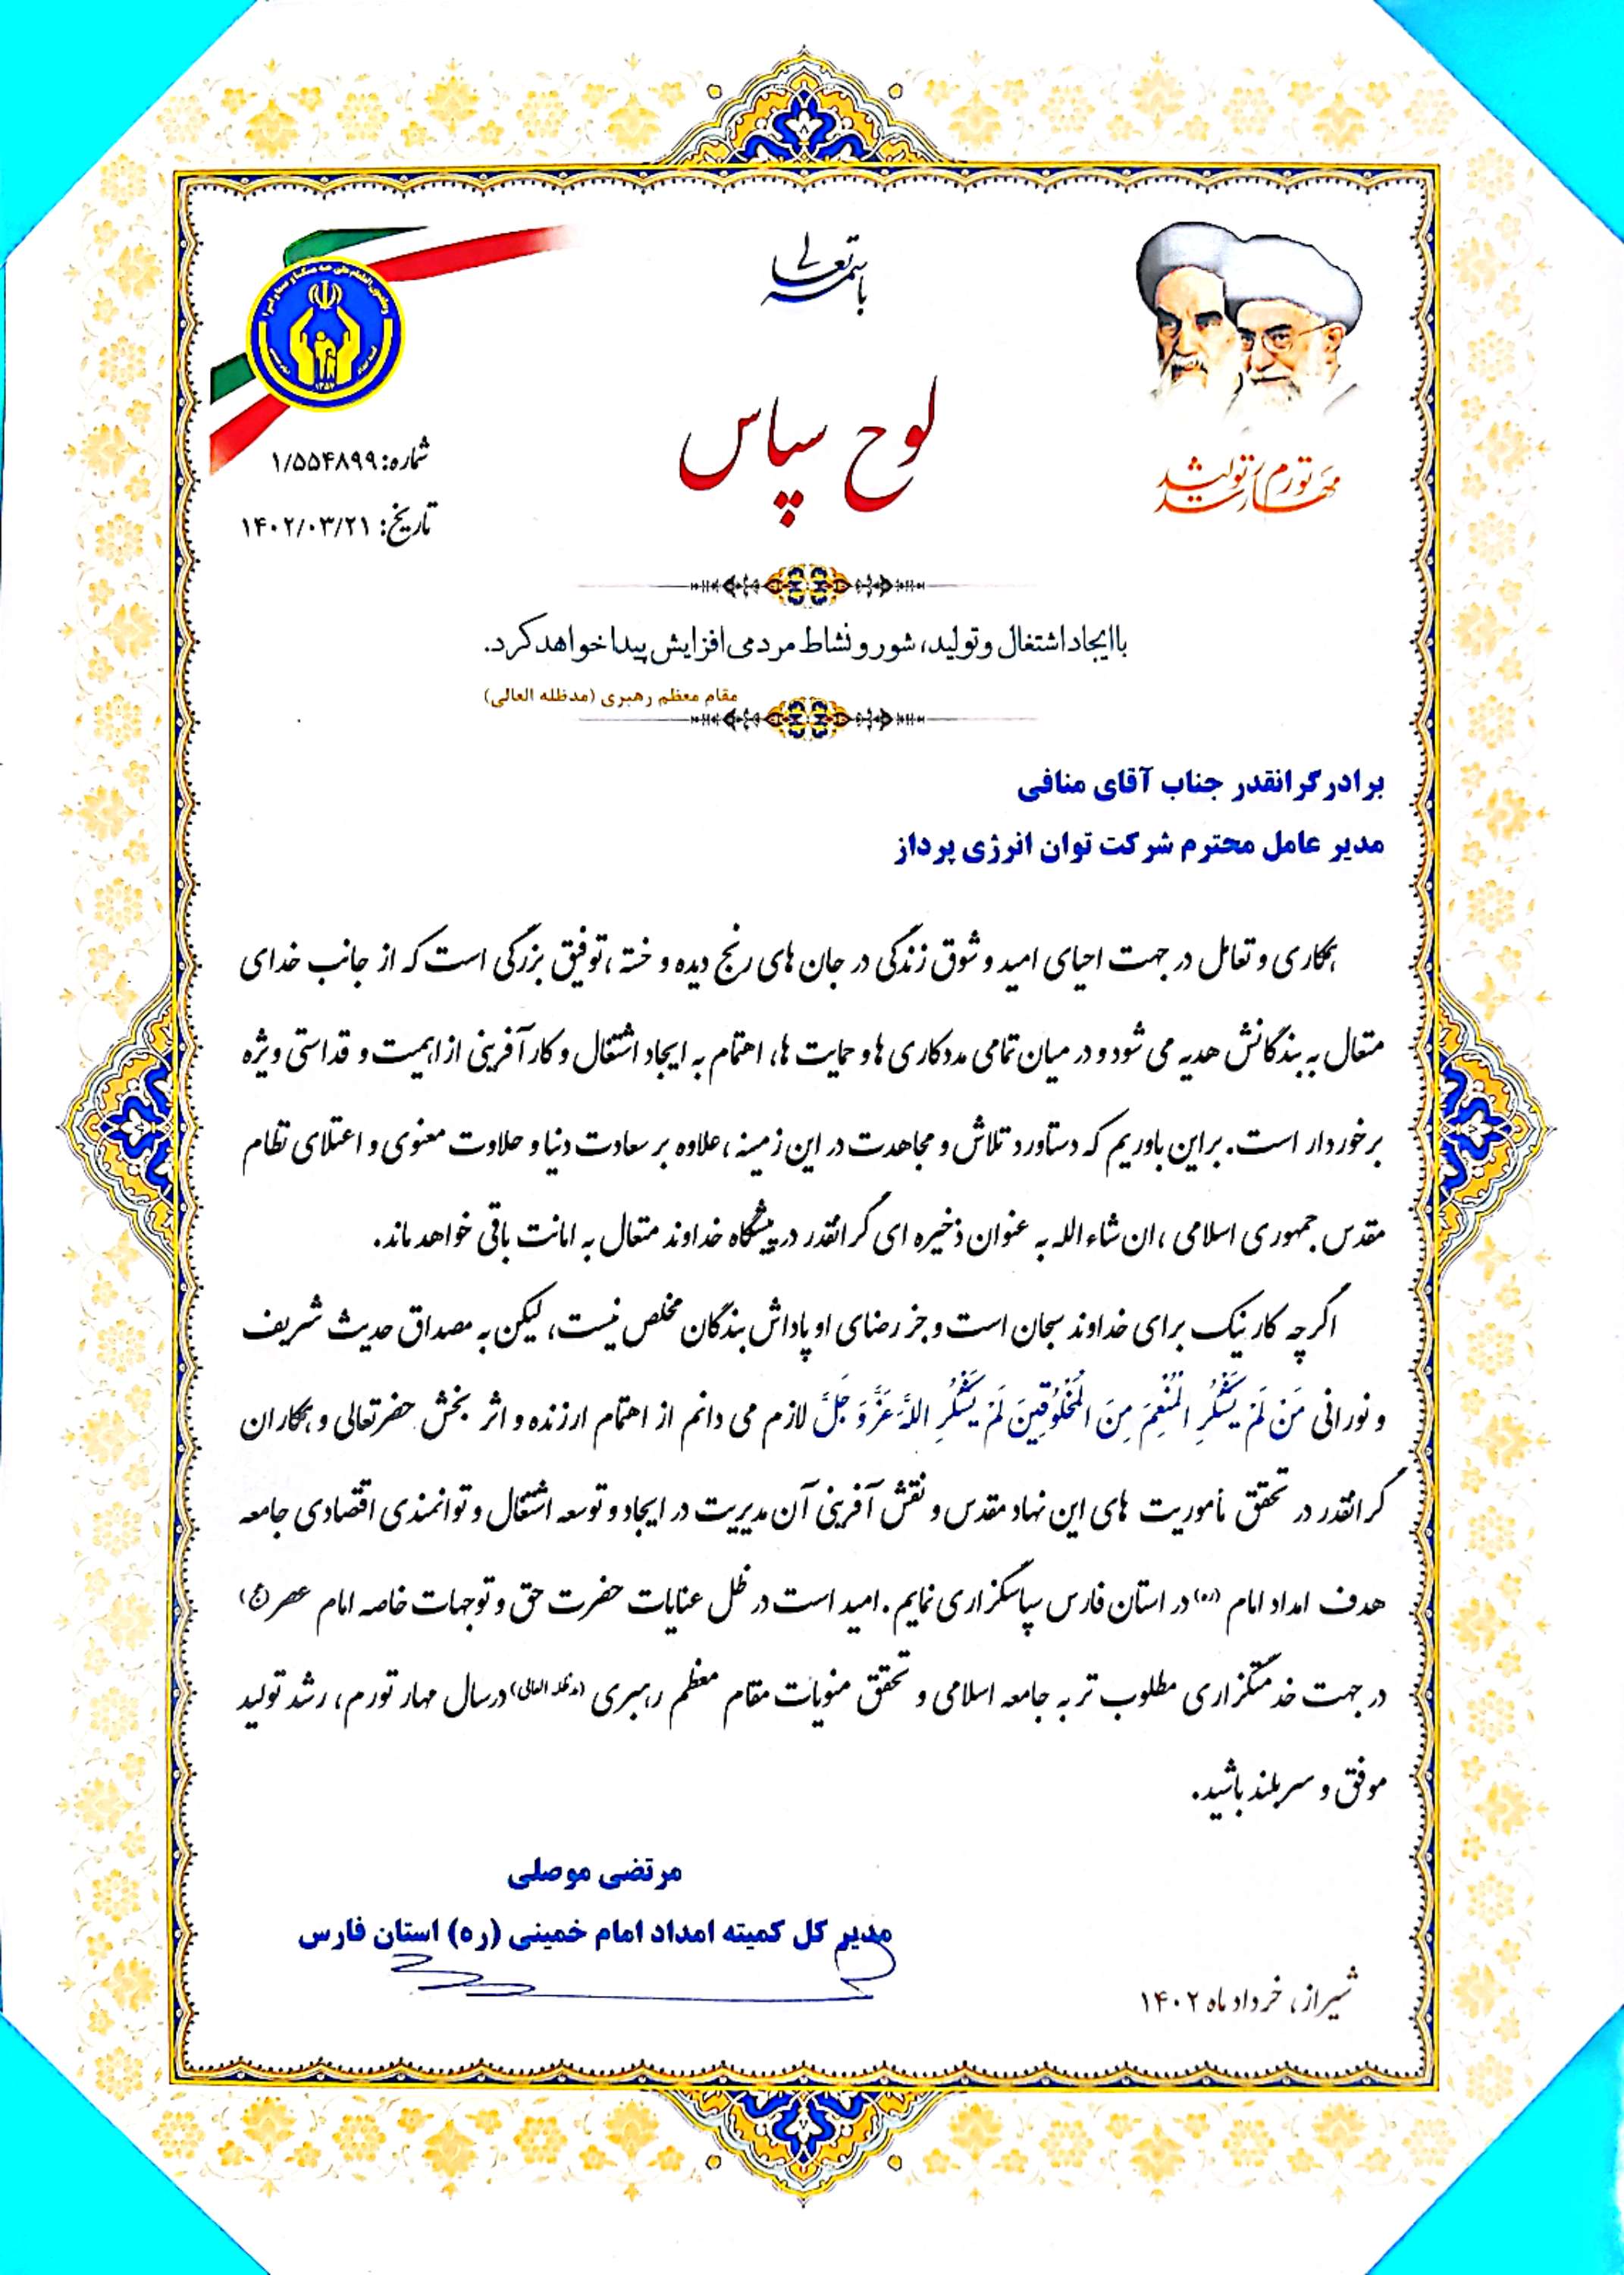 باسمه تعالی
لوح سپاس
مهار تورم، رشد تولید
شماره: ۱/۵۵۴۸۹۹
تاریخ: ۱۴۰۲/۰۳/۲۱
با ایجاد اشتغال و تولید، شور و نشاط مردمی افزایش پیدا خواهد کرد.
مقام معظم رهبری (مدظله العالی)
برادر گرانقدر جناب آقای منافی
مدیر عامل محترم شرکت توان انرژی پرداز
همکاری و تعامل در جهت احیای امید و شوق زندگی در جان های رنج دیده و خسته ، توفیق بزرگی است که از جانب خدای
متعال به بندگانش هدیه می شود و در میان تمامی مددکاری ها و حمایت ها، اهتمام به ایجاد اشتغال و کارآفرینی از اهمیت و قداستی ویژه
برخوردار است. براین باوریم که دستاورد تلاش و مجاهدت در این زمینه ، علاوه بر سعادت دنیا و حلاوت معنوی و اعتلای نظام
مقدس جمهوری اسلامی ، ان شاء الله به عنوان ذخیره ای گرانقدر در پیشگاه خداوند متعال به امانت باقی خواهد ماند.
اگرچه کار نیک برای خداوند سبحان است و جز رضای او پاداش بندگان مخلص نیست، لیکن به مصداق حدیث شریف
و نورانی مَن لَم یَشکُرِ المُنعِمَ مِنَ المَخلُوقینَ لَم یَشکُرِ اللهَ عَزَّ وَ جَلَّ لازم می دانم از اهتمام ارزنده و اثر بخش حضرتعالی و همکاران
گرانقدر در تحقق مأموریت های این نهاد مقدس و نقش آفرینی آن مدیریت در ایجاد و توسعه اشتغال و توانمندی اقتصادی جامعه
هدف امداد امام (ره) در استان فارس سپاسگزاری نمایم. امید است در ظل عنایات حضرت حق و توجهات خاصه امام عصر (عج)
در جهت خدمتگزاری مطلوب تر به جامعه اسلامی و تحقق منویات مقام معظم رهبری (مدظله العالی) در سال مهار تورم، رشد تولید
موفق و سربلند باشید.
مرتضی موصلی
مدیر کل کمیته امداد امام خمینی (ره) استان فارس
شیراز، خرداد ماه ۱۴۰۲